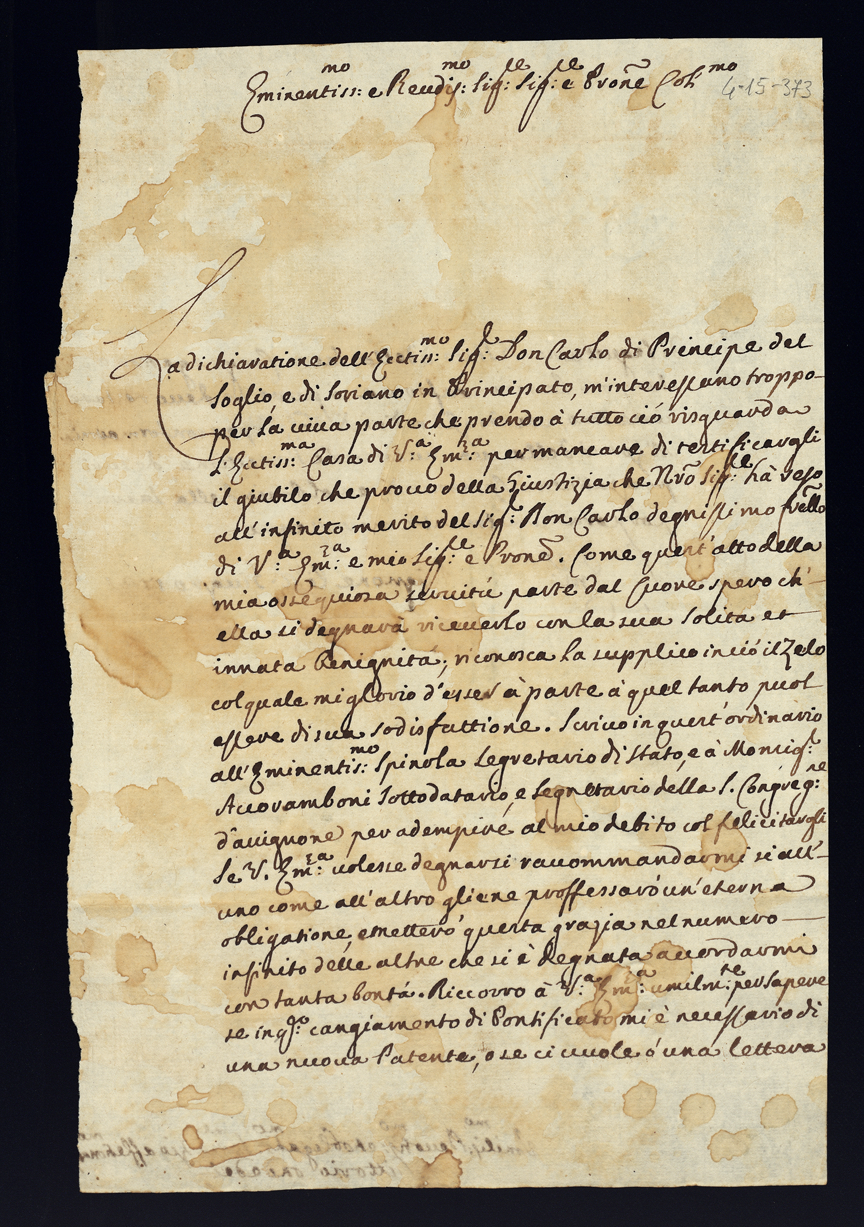 Eminentiss:mo e Reudis:mo Sig:re Sig:re e Prone Col:mo 4-15-373
La dichiaratione dell'Ecctiss:mo Sig:r Don Carlo di Principe del
Soglio, e di Soriano in Principato, m'interessano troppo
per la viva parte che prendo à tutto ció risguarda
l'Ecctiss:ma Casa di V:a Em:za per mancare di testificargli
il giubilo che provo della Giustizia che Nro Sig:re hà reso
all'infinito merito del Sig:r Don Carlo degnissimo frello
di V:a Em:za e mio Sig:re e Prone. Come quest'atto della
mia ossequiosa servitú parte dal Cuore spero ch'
ella si degnarà riceverlo con la sua solita et
innata Benignità; riconosca la supplico in ció il Zelo
col quale mi glorio d'esser à parte à quel tanto puol
essere di sua sodisfattione. Scrivo in quest'ordinario
all'Eminentis:mo Spinola Segretario di Stato, e à Monsig:r
Accoramboni Sottodatario, e Segrettario della S. Congreg:ne
d'avignone per adempire al mio debito col felicitargli
Se V. Em:za volesse degnarsi raccommandarmi si all'
uno come all'altro gliene proffessaró un'eterna
obligatione, e metteró questa grazia nel numero
infinito delle altre che si è degnata accordarmi
con tanta bontá. Riccorro à V:a Em:za umilm:te per sapere
se in q:to cangiamento di Pontificato mi è necessario di
una nuova Patente, o se ci vuole ó una lettera